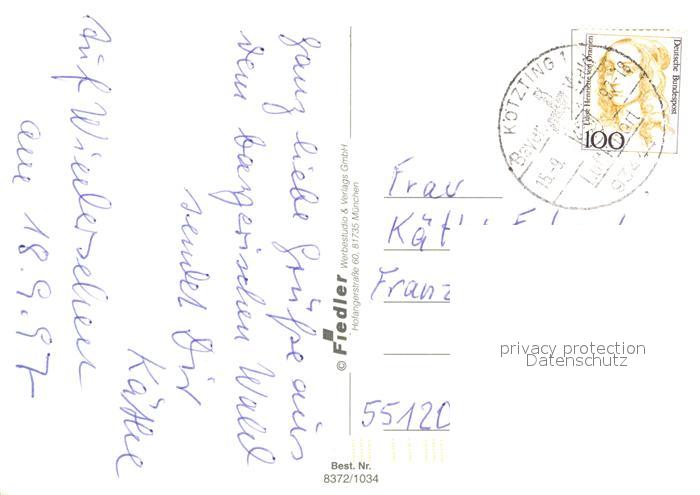 ganz liebe Grüße aus
dem bayerischen Wald
sendet Dir
Käthe
Auf Wiedersehen
am 18.9.97
© Fiedler
Werbestudio & Verlags GmbH
Hofangerstraße 60, 81735 München
Best. Nr.
8372/1034
Deutsche Bundespost
Luise Henriette von Oranien
100
KÖTZTING 1
15.-9.
Frau
Kät
Franz
55120
privacy protection
Datenschutz